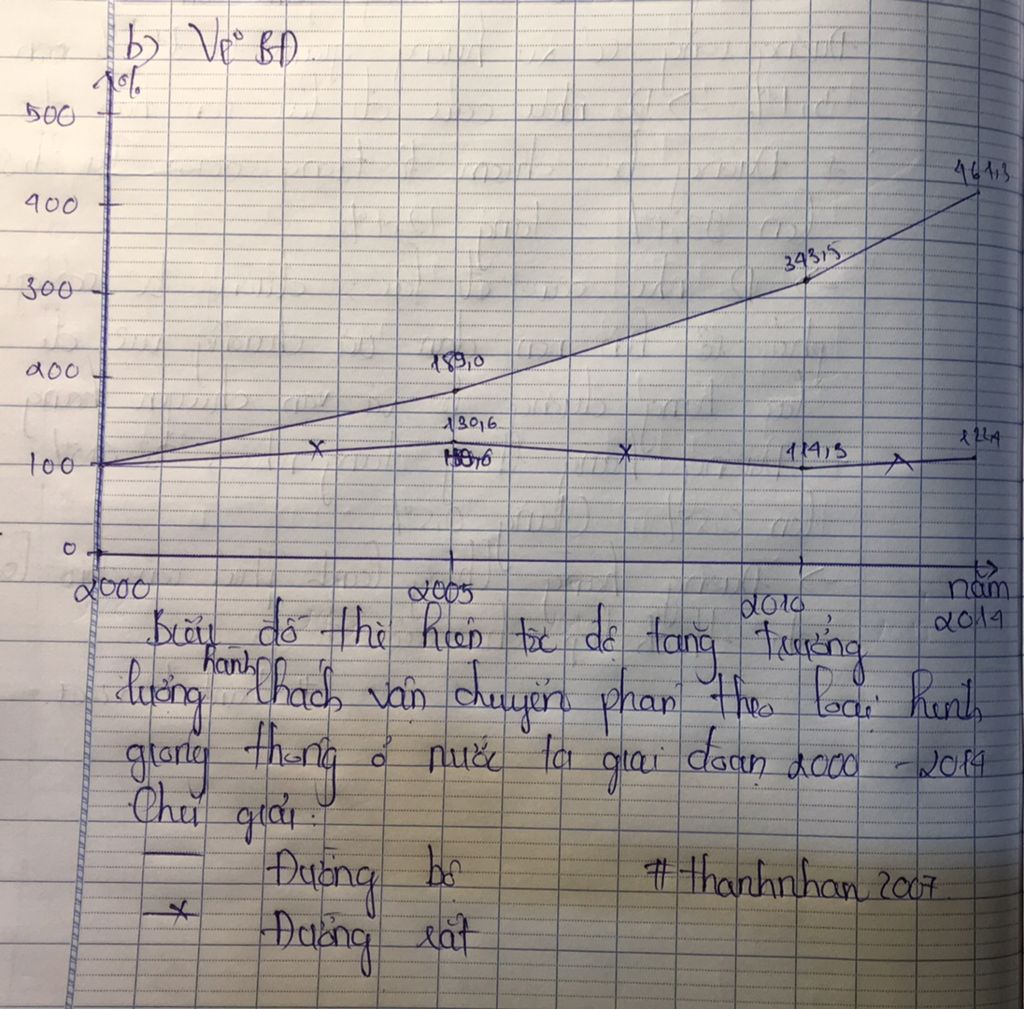 b) Vẽ BĐ.
%
500
400
300
200
100
0
461,3
343,5
189,0
130,6
114,3
2000
2005
2010
năm
2014
Biểu đồ thể hiện tốc độ tăng trưởng
lượng hành khách vận chuyển phân theo loại hình
giong thông ở nước ta giai đoạn 2000 - 2014
Chú giải:
Đường bộ
# thanhnhan 2007
Đường sắt